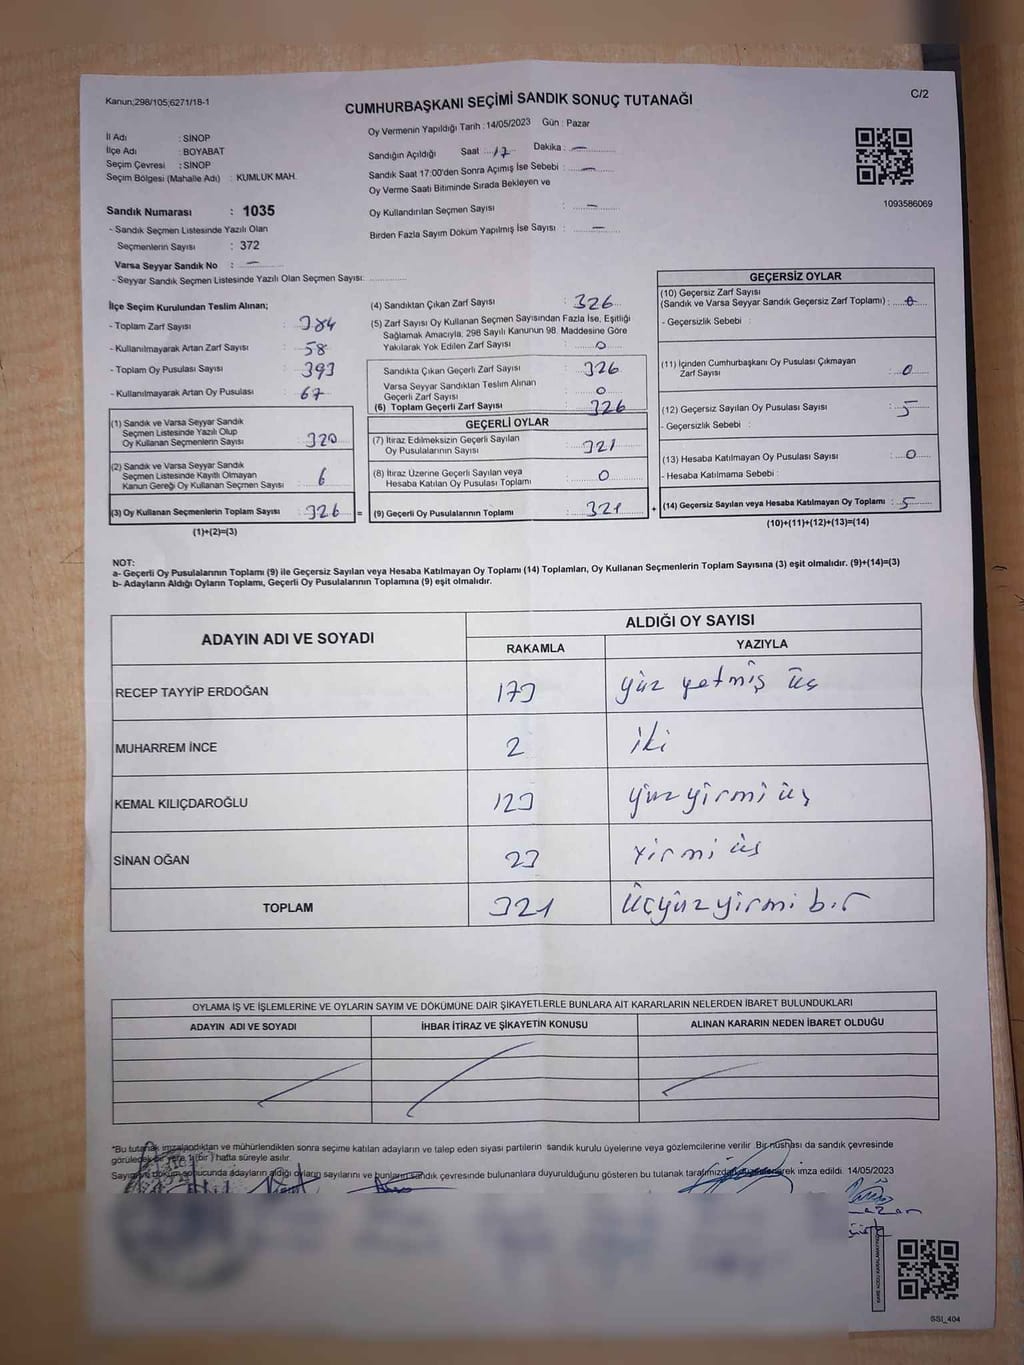 Kanun;298/105;6271/18-1
C/2
CUMHURBAŞKANI SEÇİMİ SANDIK SONUÇ TUTANAĞI
İl Adı : SİNOP
İlçe Adı : BOYABAT
Seçim Çevresi : SİNOP
Seçim Bölgesi (Mahalle Adı) : KUMLUK MAH.
Sandık Numarası : 1035
- Sandık Seçmen Listesinde Yazılı Olan
Seçmenlerin Sayısı : 372
Varsa Seyyar Sandık No : —
- Seyyar Sandık Seçmen Listesinde Yazılı Olan Seçmen Sayısı:
Oy Vermenin Yapıldığı Tarih : 14/05/2023 Gün : Pazar
Sandığın Açıldığı Saat : 17 Dakika : —
Sandık Saat 17:00'den Sonra Açımış İse Sebebi : —
Oy Verme Saati Bitiminde Sırada Bekleyen ve
Oy Kullandırılan Seçmen Sayısı : —
Birden Fazla Sayım Döküm Yapılmış İse Sayısı : —
1093586069
İlçe Seçim Kurulundan Teslim Alınan;
- Toplam Zarf Sayısı : 384
- Kullanılmayarak Artan Zarf Sayısı : 58
- Toplam Oy Pusulası Sayısı : 393
- Kullanılmayarak Artan Oy Pusulası : 67
(1) Sandık ve Varsa Seyyar Sandık
Seçmen Listesinde Yazılı Olup
Oy Kullanan Seçmenlerin Sayısı : 320
(2) Sandık ve Varsa Seyyar Sandık
Seçmen Listesinde Kayıtlı Olmayan
Kanun Gereği Oy Kullanan Seçmen Sayısı : 6
(3) Oy Kullanan Seçmenlerin Toplam Sayısı : 326 =
(1)+(2)=(3)
(4) Sandıktan Çıkan Zarf Sayısı : 326
(5) Zarf Sayısı Oy Kullanan Seçmen Sayısından Fazla İse, Eşitliği
Sağlamak Amacıyla, 298 Sayılı Kanunun 98. Maddesine Göre
Yakılarak Yok Edilen Zarf Sayısı : 0
Sandıkta Çıkan Geçerli Zarf Sayısı : 326
Varsa Seyyar Sandıktan Teslim Alınan
Geçerli Zarf Sayısı : 0
(6) Toplam Geçerli Zarf Sayısı : 326
GEÇERLİ OYLAR
(7) İtiraz Edilmeksizin Geçerli Sayılan
Oy Pusulalarının Sayısı : 321
(8) İtiraz Üzerine Geçerli Sayılan veya
Hesaba Katılan Oy Pusulası Toplamı : 0
(9) Geçerli Oy Pusulalarının Toplamı : 321 +
GEÇERSİZ OYLAR
(10) Geçersiz Zarf Sayısı
(Sandık ve Varsa Seyyar Sandık Geçersiz Zarf Toplamı) : 0
- Geçersizlik Sebebi :
(11) İçinden Cumhurbaşkanı Oy Pusulası Çıkmayan
Zarf Sayısı : 0
(12) Geçersiz Sayılan Oy Pusulası Sayısı : 5
- Geçersizlik Sebebi :
(13) Hesaba Katılmayan Oy Pusulası Sayısı : 0
- Hesaba Katılmama Sebebi :
(14) Geçersiz Sayılan veya Hesaba Katılmayan Oy Toplamı : 5
(10)+(11)+(12)+(13)=(14)
NOT:
a- Geçerli Oy Pusulalarının Toplamı (9) ile Geçersiz Sayılan veya Hesaba Katılmayan Oy Toplamı (14) Toplamları, Oy Kullanan Seçmenlerin Toplam Sayısına (3) eşit olmalıdır. (9)+(14)=(3)
b- Adayların Aldığı Oyların Toplamı, Geçerli Oy Pusulalarının Toplamına (9) eşit olmalıdır.
ADAYIN ADI VE SOYADI
ALDIĞI OY SAYISI
RAKAMLA YAZIYLA
RECEP TAYYİP ERDOĞAN 173 yüz yetmiş üç
MUHARREM İNCE 2 iki
KEMAL KILIÇDAROĞLU 123 yüz yirmi üç
SİNAN OĞAN 23 Yirmi üç
TOPLAM 321 Üçyüz yirmi bir
OYLAMA İŞ VE İŞLEMLERİNE VE OYLARIN SAYIM VE DÖKÜMÜNE DAİR ŞİKAYETLERLE BUNLARA AİT KARARLARIN NELERDEN İBARET BULUNDUKLARI
ADAYIN ADI VE SOYADI İHBAR İTİRAZ VE ŞİKAYETİN KONUSU ALINAN KARARIN NEDEN İBARET OLDUĞU
"Bu tutanak imzalandıktan ve mühürlendikten sonra seçime katılan adayların ve talep eden siyasi partilerin sandık kurulu üyelerine veya gözlemcilerine verilir. Bir nüshası da sandık çevresinde
görülecek bir yere 1 (bir) hafta süreyle asılır.
Sayım ve döküm sonucunda adayların aldığı oyların sayılarını ve bunların sandık çevresinde bulunanlara duyurulduğunu gösteren bu tutanak tarafımızdan imza edildi. 14/05/2023
SSI_404